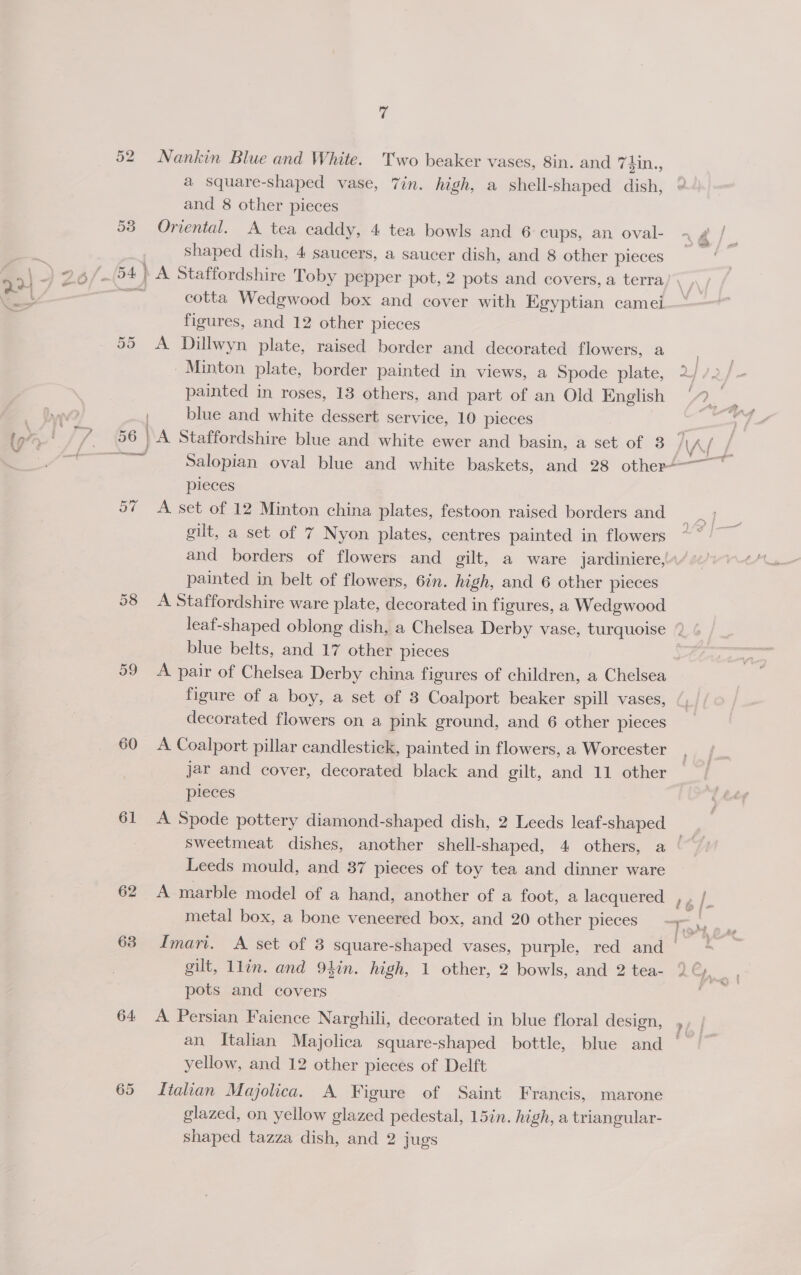 7
52 Nankin Blue and White. Two beaker vases, 8in. and 7½in.,
a square-shaped vase, 7in. high, a shell-shaped dish,
and 8 other pieces
53 Oriental. A tea caddy, 4 tea bowls and 6 cups, an oval-
shaped dish, 4 saucers, a saucer dish, and 8 other pieces
54 A Staffordshire Toby pepper pot, 2 pots and covers, a terra
cotta Wedgwood box and cover with Egyptian camei
figures, and 12 other pieces
55 A Dillwyn plate, raised border and decorated flowers, a
Minton plate, border painted in views, a Spode plate,
painted in roses, 13 others, and part of an Old English
blue and white dessert service, 10 pieces
56 A Staffordshire blue and white ewer and basin, a set of 3
Salopian oval blue and white baskets, and 28 other
pieces
57 A set of 12 Minton china plates, festoon raised borders and
gilt, a set of 7 Nyon plates, centres painted in flowers
and borders of flowers and gilt, a ware jardiniere,
painted in belt of flowers, 6in. high, and 6 other pieces
58 A Staffordshire ware plate, decorated in figures, a Wedgwood
leaf-shaped oblong dish, a Chelsea Derby vase, turquoise
blue belts, and 17 other pieces
59 A pair of Chelsea Derby china figures of children, a Chelsea
figure of a boy, a set of 3 Coalport beaker spill vases,
decorated flowers on a pink ground, and 6 other pieces
60 A Coalport pillar candlestick, painted in flowers, a Worcester
jar and cover, decorated black and gilt, and 11 other
pieces
61 A Spode pottery diamond-shaped dish, 2 Leeds leaf-shaped
sweetmeat dishes, another shell-shaped, 4 others, a
Leeds mould, and 37 pieces of toy tea and dinner ware
62 A marble model of a hand, another of a foot, a lacquered
metal box, a bone veneered box, and 20 other pieces
63 Imari. A set of 3 square-shaped vases, purple, red and
gilt, 11in. and 9½in. high, 1 other, 2 bowls, and 2 tea-
pots and covers
64 A Persian Faience Narghili, decorated in blue floral design,
an Italian Majolica square-shaped bottle, blue and
yellow, and 12 other pieces of Delft
65 Italian Majolica. A Figure of Saint Francis, marone
glazed, on yellow glazed pedestal, 15in. high, a triangular-
shaped tazza dish, and 2 jugs